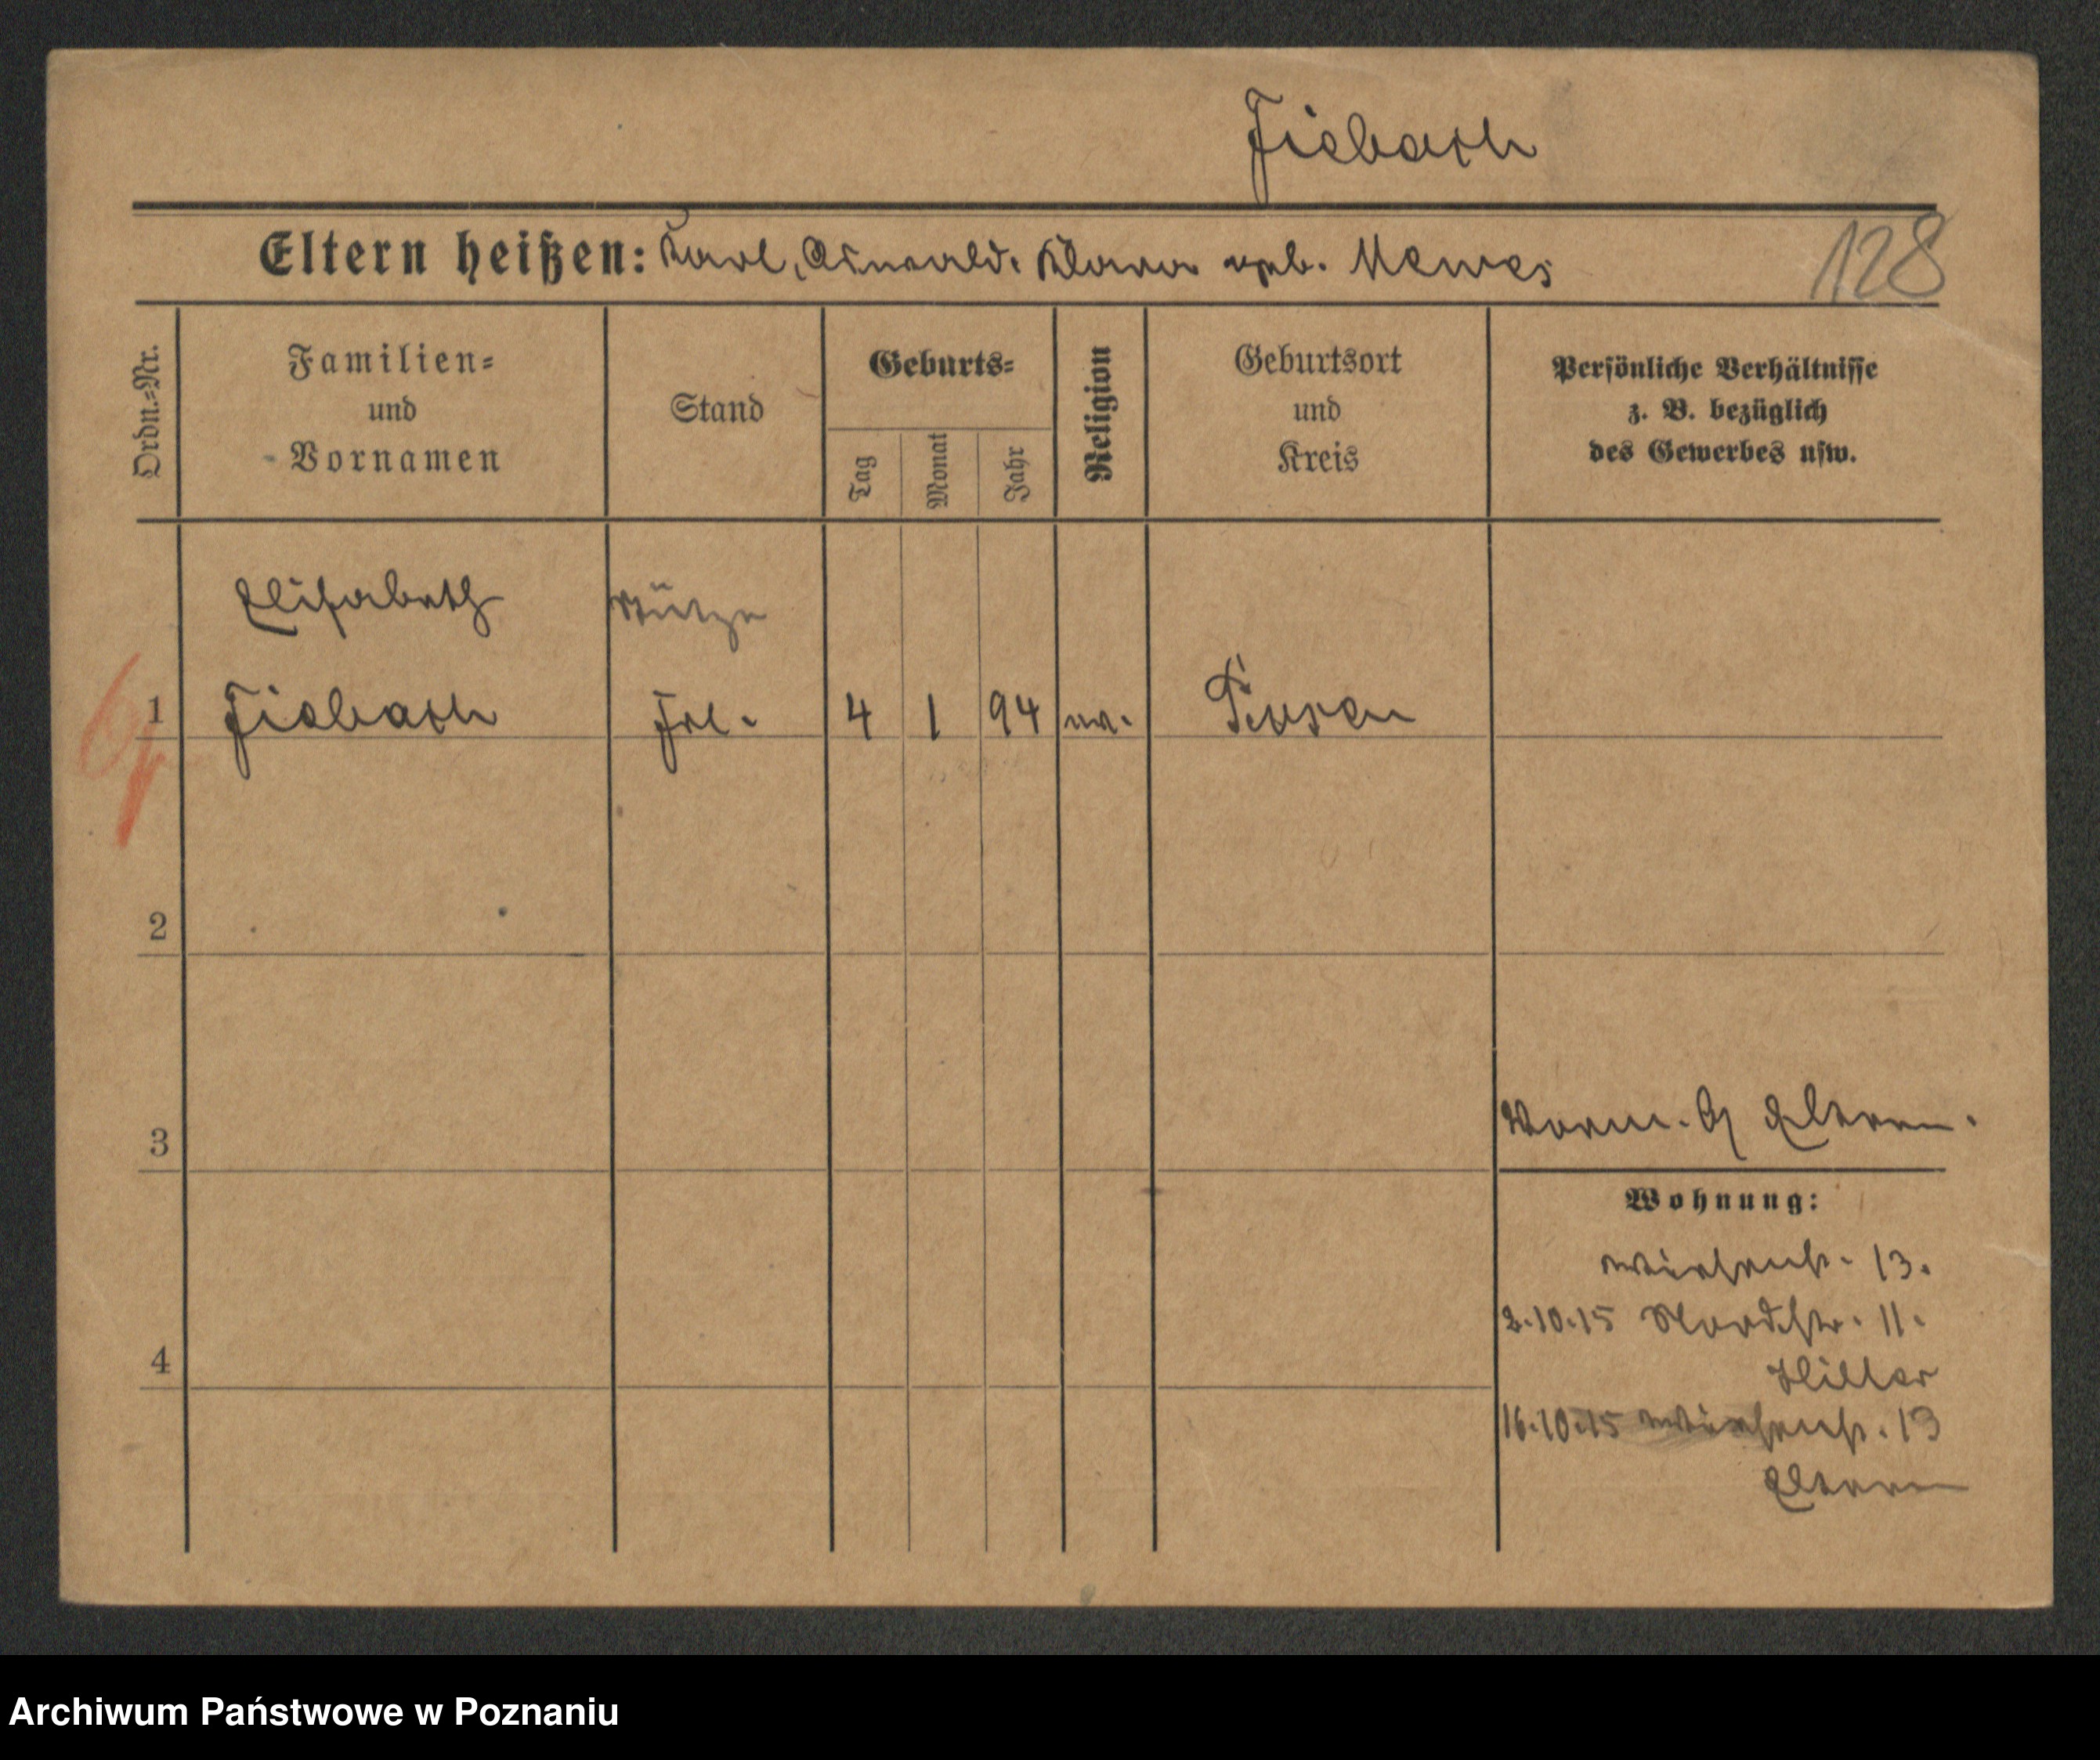 Fiebach
Eltern heißen: Karl, Oswald. Klara geb. Mewes
128
Ordn.=Nr.
Familien=
und
Vornamen
Stand
Geburts=
Tag
Monat
Jahr
Religion
Geburtsort
und
Kreis
Persönliche Verhältnisse
z. B. bezüglich
des Gewerbes usw.
Elisabeth Stütze
1 Fiebach Frl. 4 1 94 ev. Posen
2
3
Eltern.
Wohnung:
13.
2.10.15 Nordstr. 11.
Hiller
4
16.10.15 13
Eltern
Archiwum Państwowe w Poznaniu